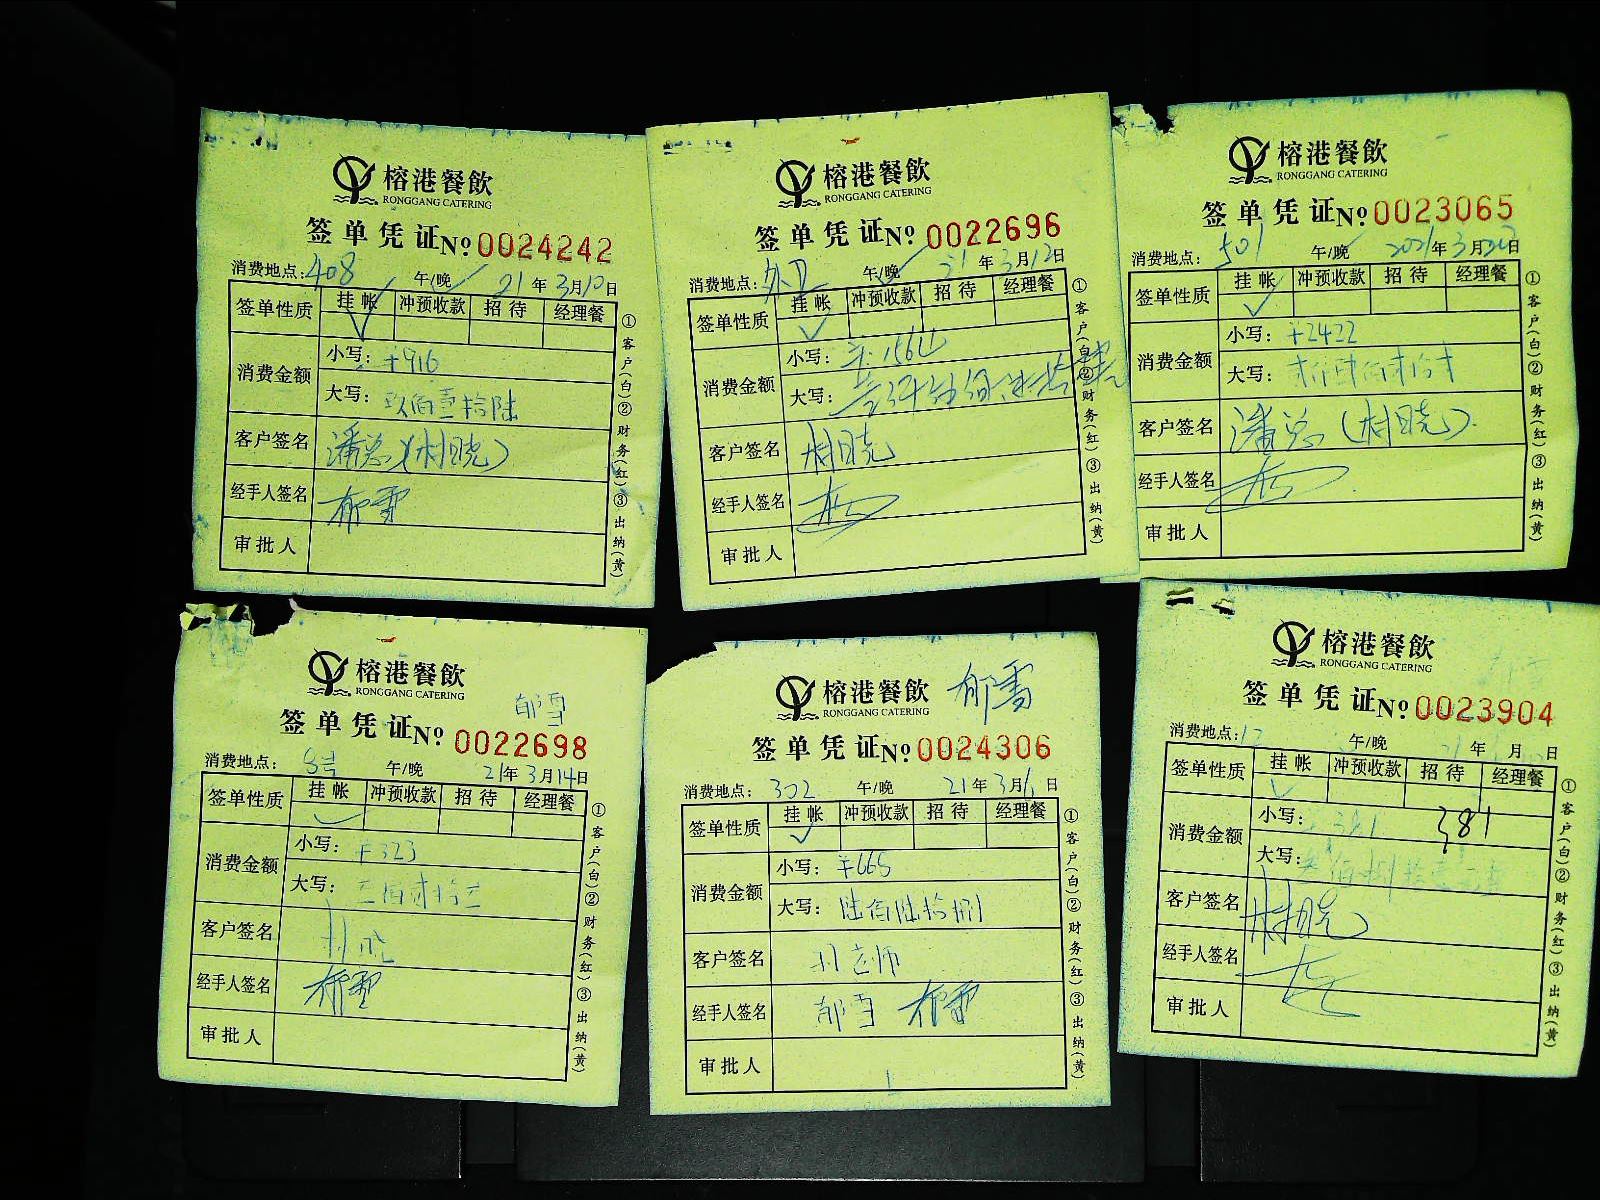 榕港餐飲
RONGGANG CATERING
签单凭证 № 0024242
消费地点: 408 午/晚 21年3月10日
签单性质 挂帐 冲预收款 招待 经理餐
消费金额 小写: ¥916
大写: 玖佰壹拾陆
客户签名 潘总(林晓)
经手人签名 郁雪
审批人
①客户(白)②财务(红)③出纳(黄)
榕港餐飲
RONGGANG CATERING
签单凭证 № 0022696
消费地点: 午/晚 21年3月12日
签单性质 挂帐 冲预收款 招待 经理餐
消费金额 小写:
大写:
客户签名 林晓
经手人签名
审批人
①客户(白)②财务(红)③出纳(黄)
榕港餐飲
RONGGANG CATERING
签单凭证 № 0023065
消费地点: 501 午/晚 2021年3月 日
签单性质 挂帐 冲预收款 招待 经理餐
消费金额 小写: ¥2422
大写: 贰仟肆佰贰拾贰
客户签名 潘总(林晓)
经手人签名
审批人
①客户(白)②财务(红)③出纳(黄)
榕港餐飲
RONGGANG CATERING
郁雪
签单凭证 № 0022698
消费地点: 8号 午/晚 21年3月14日
签单性质 挂帐 冲预收款 招待 经理餐
消费金额 小写: ¥323
大写: 三佰贰拾三
客户签名 林晓
经手人签名 郁雪
审批人
①客户(白)②财务(红)③出纳(黄)
榕港餐飲 郁雪
RONGGANG CATERING
签单凭证 № 0024306
消费地点: 302 午/晚 21年3月 日
签单性质 挂帐 冲预收款 招待 经理餐
消费金额 小写:
大写: 陆佰陆拾捌
客户签名 林老师
经手人签名 郁雪 郁雪
审批人
①客户(白)②财务(红)③出纳(黄)
榕港餐飲
RONGGANG CATERING
签单凭证 № 0023904
消费地点: 12 午/晚 21年 月 日
签单性质 挂帐 冲预收款 招待 经理餐
消费金额 小写: 381 381
大写: 叁佰捌拾壹元
客户签名 林晓
经手人签名
审批人
①客户(白)②财务(红)③出纳(黄)